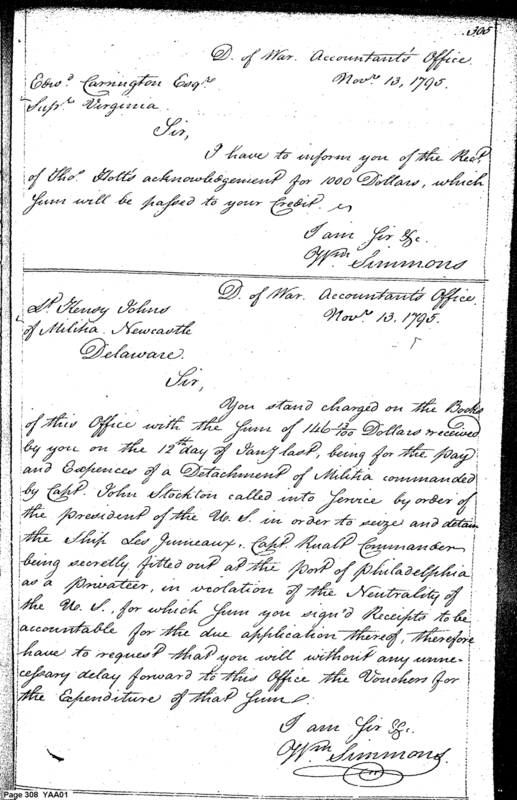 305
D. of War. Accountant's Office
Novr. 13, 1795.
Edwd. Carrington Esqr.
Supr. Virginia.
Sir,
I have to inform you of the Rect.
of Thos. Holt's acknowledgement for 1000 Dollars, which
Sum will be passed to your Credit
I am Sir &c.
Wm Simmons
D. of War. Accountant's Office
Novr. 13, 1795.
Lt. Henry Johns
of Militia. Newcastle
Delaware.
Sir,
You stand charged on the Books
of this Office with the Sum of 146 13/100 Dollars received
by you on the 12th day of Jany last, being for the pay
and Expences of a Detachment of Militia commanded
by Capt. John Stockton called into Service by order of
the President of the U. S. in order to seize and detain
the Ship Les Jumeaux, Capt. Rualt Commander
being secretly fitted out at the Port of Philadelphia
as a Privateer, in violation of the Neutrality of
the U. S., for which Sum you sign'd Receipts to be
accountable for the due application thereof, therefore
have to request that you will without any unne-
cessary delay forward to this Office the Vouchers for
the Expenditure of that Sum
I am Sir &c.
Wm Simmons.
Page 308 YAA01